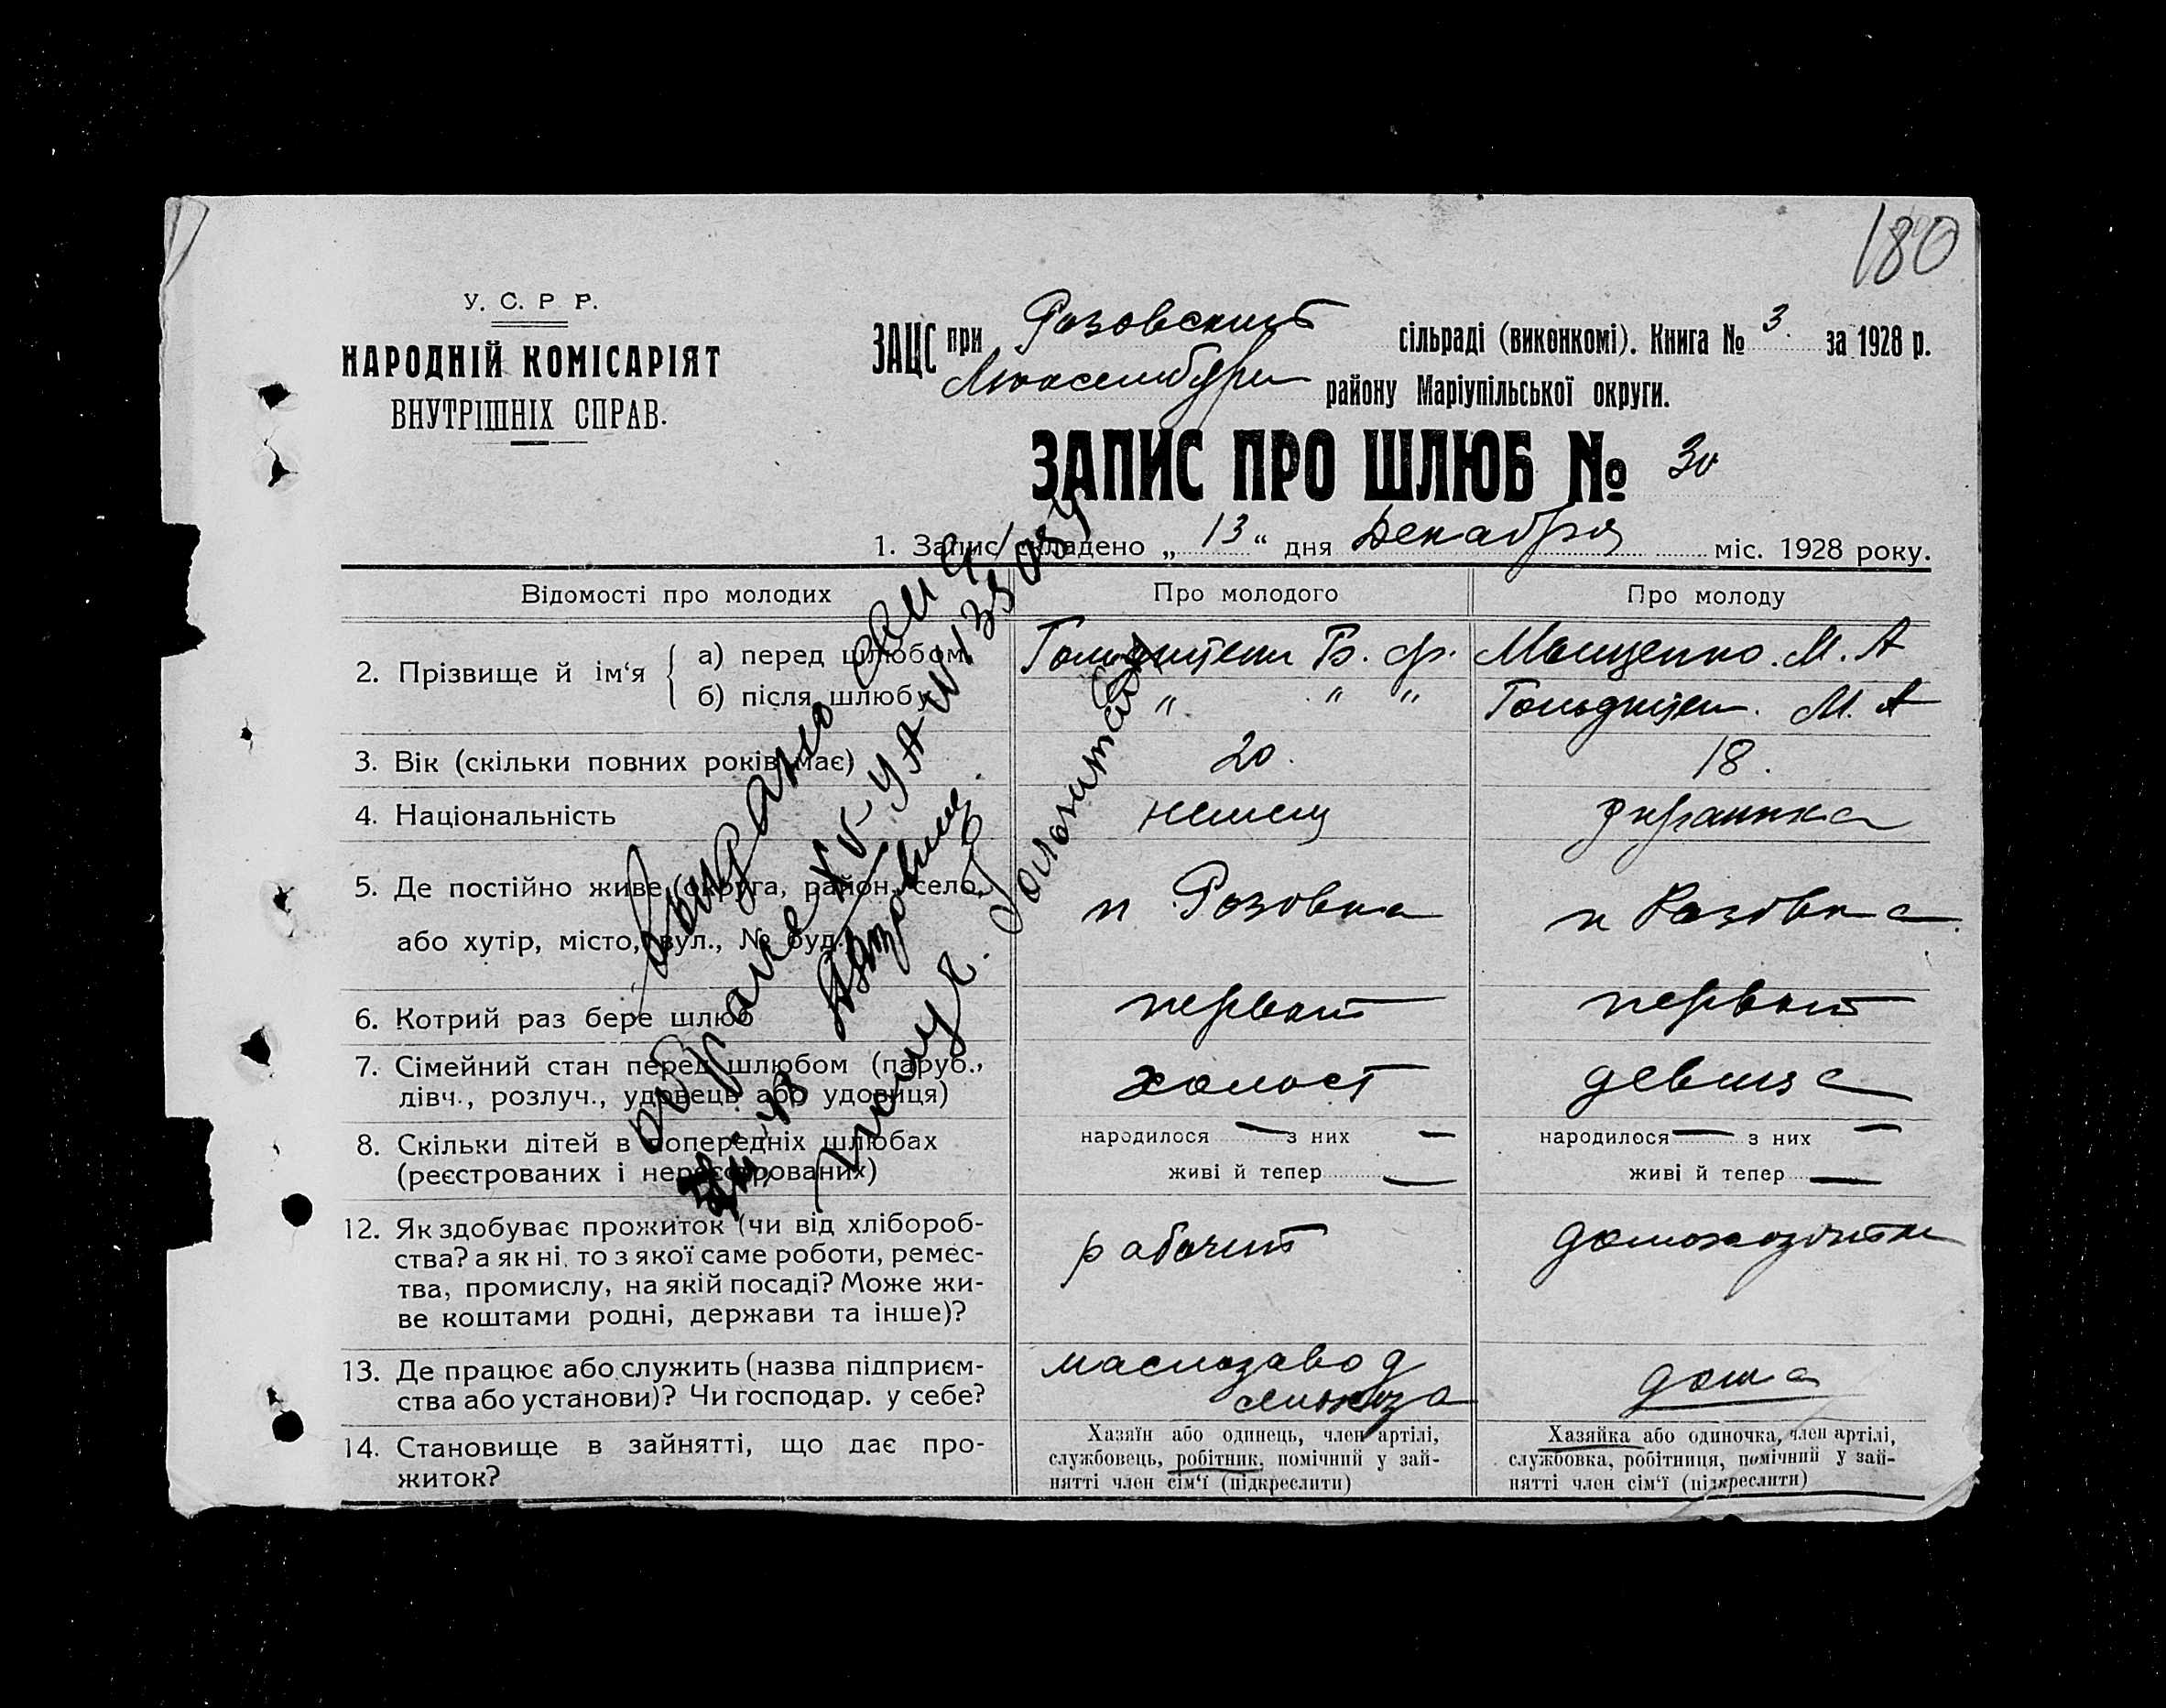 180
У. С. Р. Р.
НАРОДНІЙ КОМІСАРІЯТ
ВНУТРІШНІХ СПРАВ.
ЗАЦС при Розовский сільраді (виконкомі). Книга № 3. за 1928 р.
району Маріупільської округи.
ЗАПИС ПРО ШЛЮБ № 30
1. Запис складено „ 13 “ дня Декабря міс. 1928 року.
Відомості про молодих Про молодого Про молоду
2. Прізвище й ім‘я { а) перед шлюбом Б. Ф. Мащенко. М. А
б) після шлюбу „ „ „ М. А
3. Вік (скільки повних років має) 20. 18.
4. Національність немец
5. Де постійно живе (округа, район, село, п Розовка п Розовка
або хутір, місто, вул., № буд.)
6. Котрий раз бере шлюб первый первый
7. Сімейний стан перед шлюбом (паруб., холост девица
дівч., розлуч., удовець або удовиця)
8. Скільки дітей в попередніх шлюбах народилося — з них — народилося — з них —
(реєстрованих і нереєстрованих) живі й тепер — живі й тепер —
12. Як здобуває прожиток (чи від хлібороб-
ства? а як ні, то з якої саме роботи, ремес- рабочий
тва, промислу, на якій посаді? Може жи-
ве коштами родні, держави та інше)?
13. Де працює або служить (назва підприєм- маслозавод
ства або установи)? Чи господар. у себе? дома
14. Становище в зайнятті, що дає про-
житок?
Хазяїн або одинець, член артілі,
службовець, робітник, помічний у зай-
нятті член сім‘ї (підкреслити)
Хазяйка або одиночка, член артілі,
службовка, робітниця, помічний у зай-
нятті член сім‘ї (підкреслити)